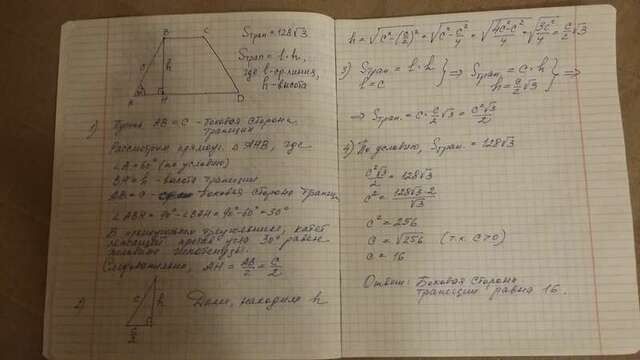 B C
c h
A H D
Sтрап = 128√3
Sтрап = l·h,
где l - ср. линия,
h - высота
1) Пусть AB = C - боковая сторона
трапеции
Рассмотрим прямоуг. △ AHB, где
∠A = 60° (по условию)
BH = h - высота трапеции
AB = C - боковая сторона трапец.
∠ABH = 90° - ∠BAH = 90° - 60° = 30°
В прямоугольном треугольнике, катет
лежащий против угла 30° равен
половине гипотенузы.
Следовательно, AH = AB/2 = C/2
2)
c h
c/2
Далее, находим h
h = √(c² - (c/2)²) = √(c² - c²/4) = √((4c² - c²)/4) = √(3c²/4) = c/2 √3
3) Sтрап = l·h
l = c } ⇒ Sтрап. = c·h
h = c/2 √3 } ⇒
⇒ Sтрап. = c · c/2 √3 = c²√3/2
4) По условию, Sтрап. = 128√3
c²√3/2 = 128√3
c² = 128√3·2/√3
c² = 256
c = √256 (т.к. c > 0)
c = 16
Ответ: Боковая сторона
трапеции равна 16.